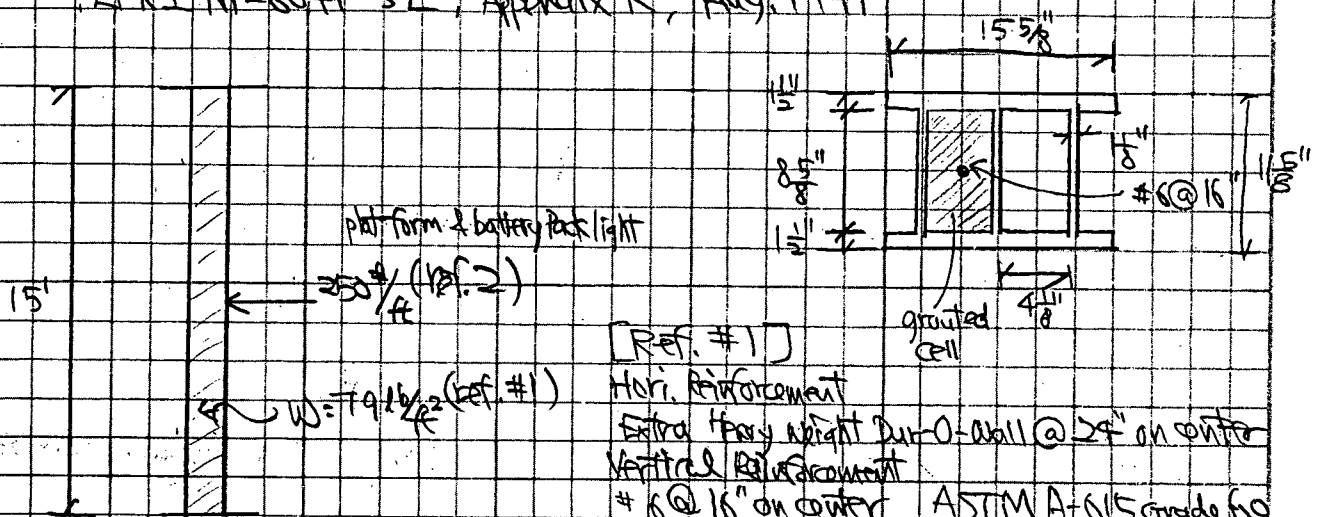 EPRI NP-6041-SL, Appendix R, Aug. 1991
15 5/8"
1 1/2"
8 5/8"
1 1/2"
1/8"
#6@16"
11 5/8"
4 1/8"
grouted
cell
platform & battery Pack light
250#/ft (ref. 2)
15'
W=79 lb/ft² (ref. #1)
[Ref. #1]
Hori. Reinforcement
Extra Heavy Weight Dur-O-Wall @ 24" on center
Vertical Reinforcement
#6@16" on center ASTM A-615 grade 60